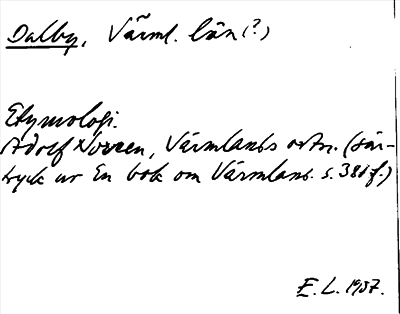 Dalby, Värml. län (?)
Etymologi.
Adolf Noreen, Värmlands ortn. (sär-
tryck ur En bok om Värmland. s. 38 f.)
E. L. 1957.